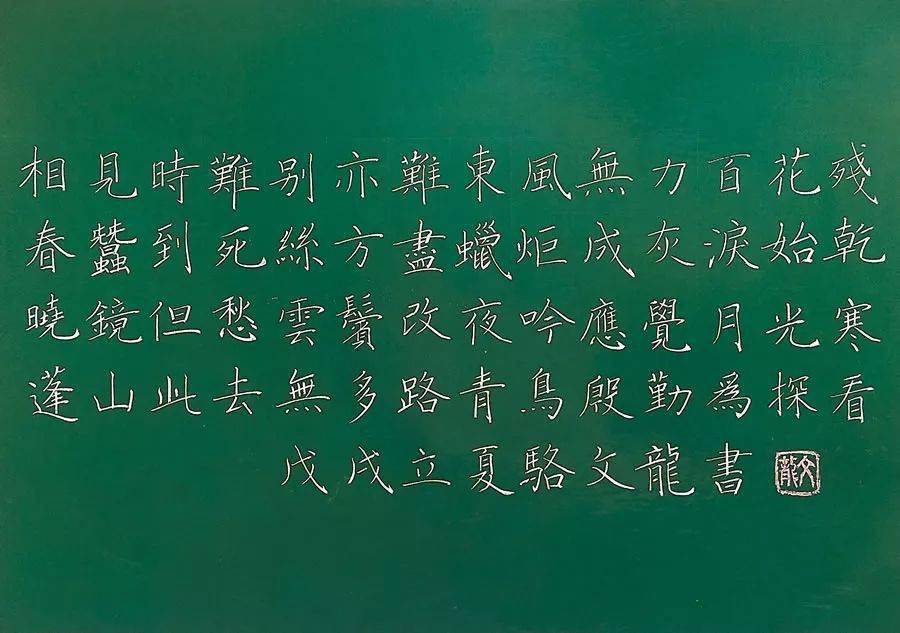 相見時難别亦難東風無力百花殘
春蠶到死絲方盡蠟炬成灰淚始乾
曉鏡但愁雲鬢改夜吟應覺月光寒
蓬山此去無多路青鳥殷勤為探看
戊戌立夏駱文龍書
文龍